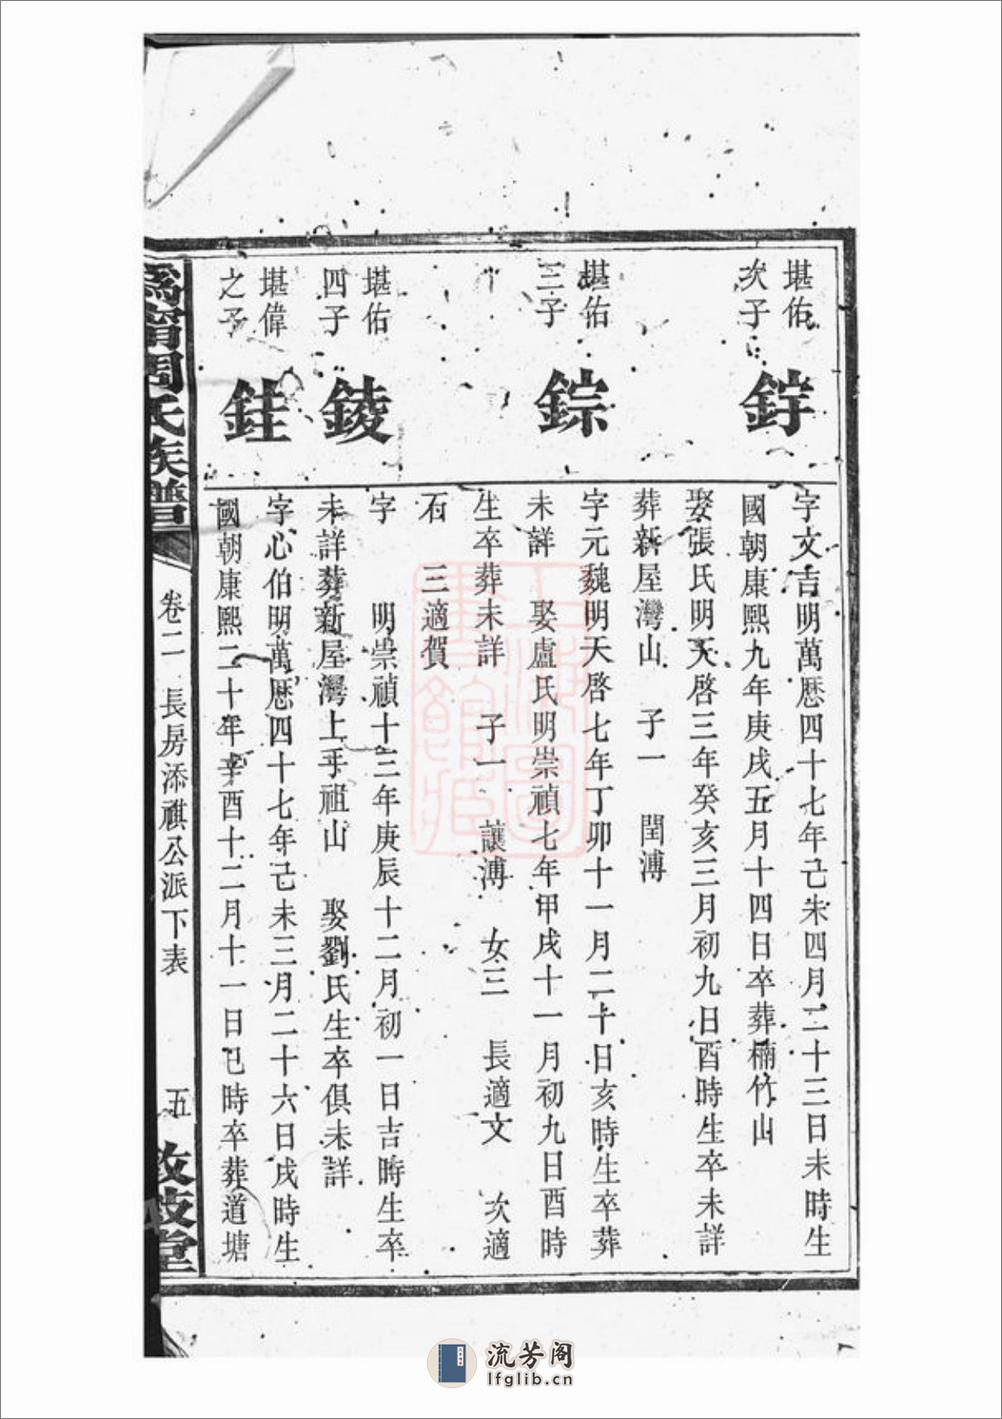 堪佑
次子
鋅
字文吉明萬厯四十七年己未四月二十三日未時生
國朝康熙九年庚戌五月十四日卒葬楠竹山
娶張氏明天啓三年癸亥三月初九日酉時生卒未詳
葬新屋灣山 子一 閏溥
堪佑
三子
錝
字元魏明天啓七年丁卯十一月二十日亥時生卒葬
未詳 娶盧氏明崇禎七年甲戌十一月初九日酉時
生卒葬未詳 子一 讓溥 女三 長適文 次適
石 三適賀
堪佑
四子
錂
字 明崇禎十三年庚辰十二月初一日吉時生卒
未詳葬新屋灣上手祖山 娶劉氏生卒俱未詳
堪偉
之子
銈
字心伯明萬厯四十七年己未三月二十六日戌時生
國朝康熙二十年辛酉十二月十一日巳時卒葬道塘
爲甯周氏族譜
卷二 長房添祺公派下表
五
敦歧堂
上海圖
書館藏
流芳阁
lfglib.cn